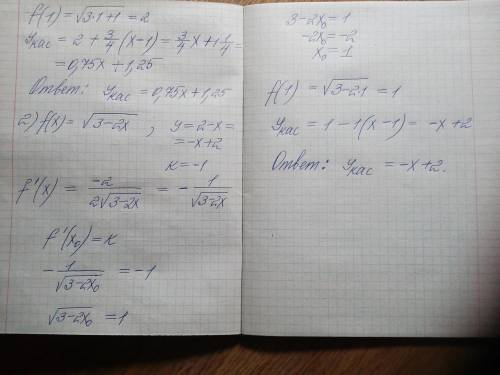 f(1) = √3·1+1 = 2
Yкас = 2 + 3/4 (x-1) = 3/4 x + 1 1/4 =
= 0,75x + 1,25
Ответ: Yкас = 0,75x + 1,25
2) f(x) = √3-2x , y = 2-x =
= -x+2
k = -1
f'(x) = -2/2√3-2x = - 1/√3-2x
f'(x₀) = k
- 1/√3-2x₀ = -1
√3-2x₀ = 1
3-2x₀ = 1
-2x₀ = -2
x₀ = 1
f(1) = √3-2·1 = 1
Yкас = 1 - 1(x-1) = -x+2
Ответ: Yкас = -x+2.